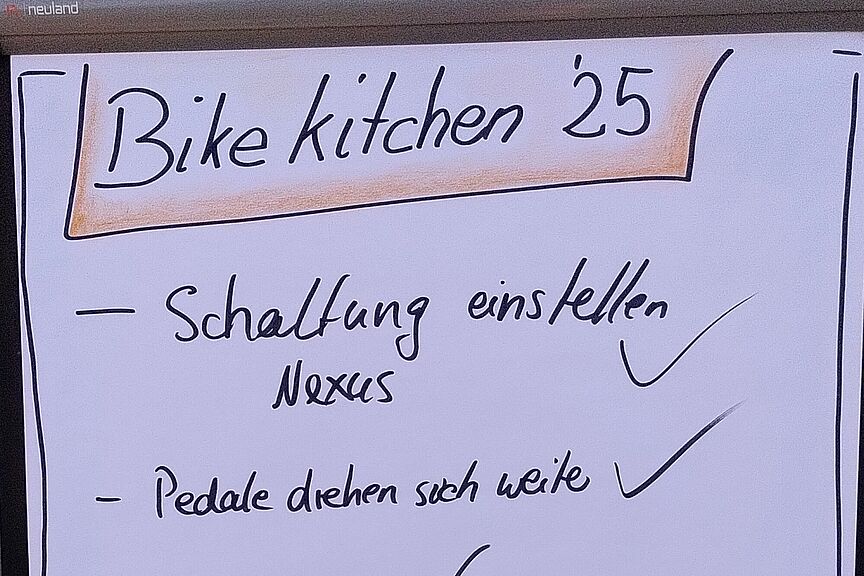 neuland
Bike kitchen '25
— Schaltung einstellen ✓
Nexus
- Pedale drehen sich weiter ✓